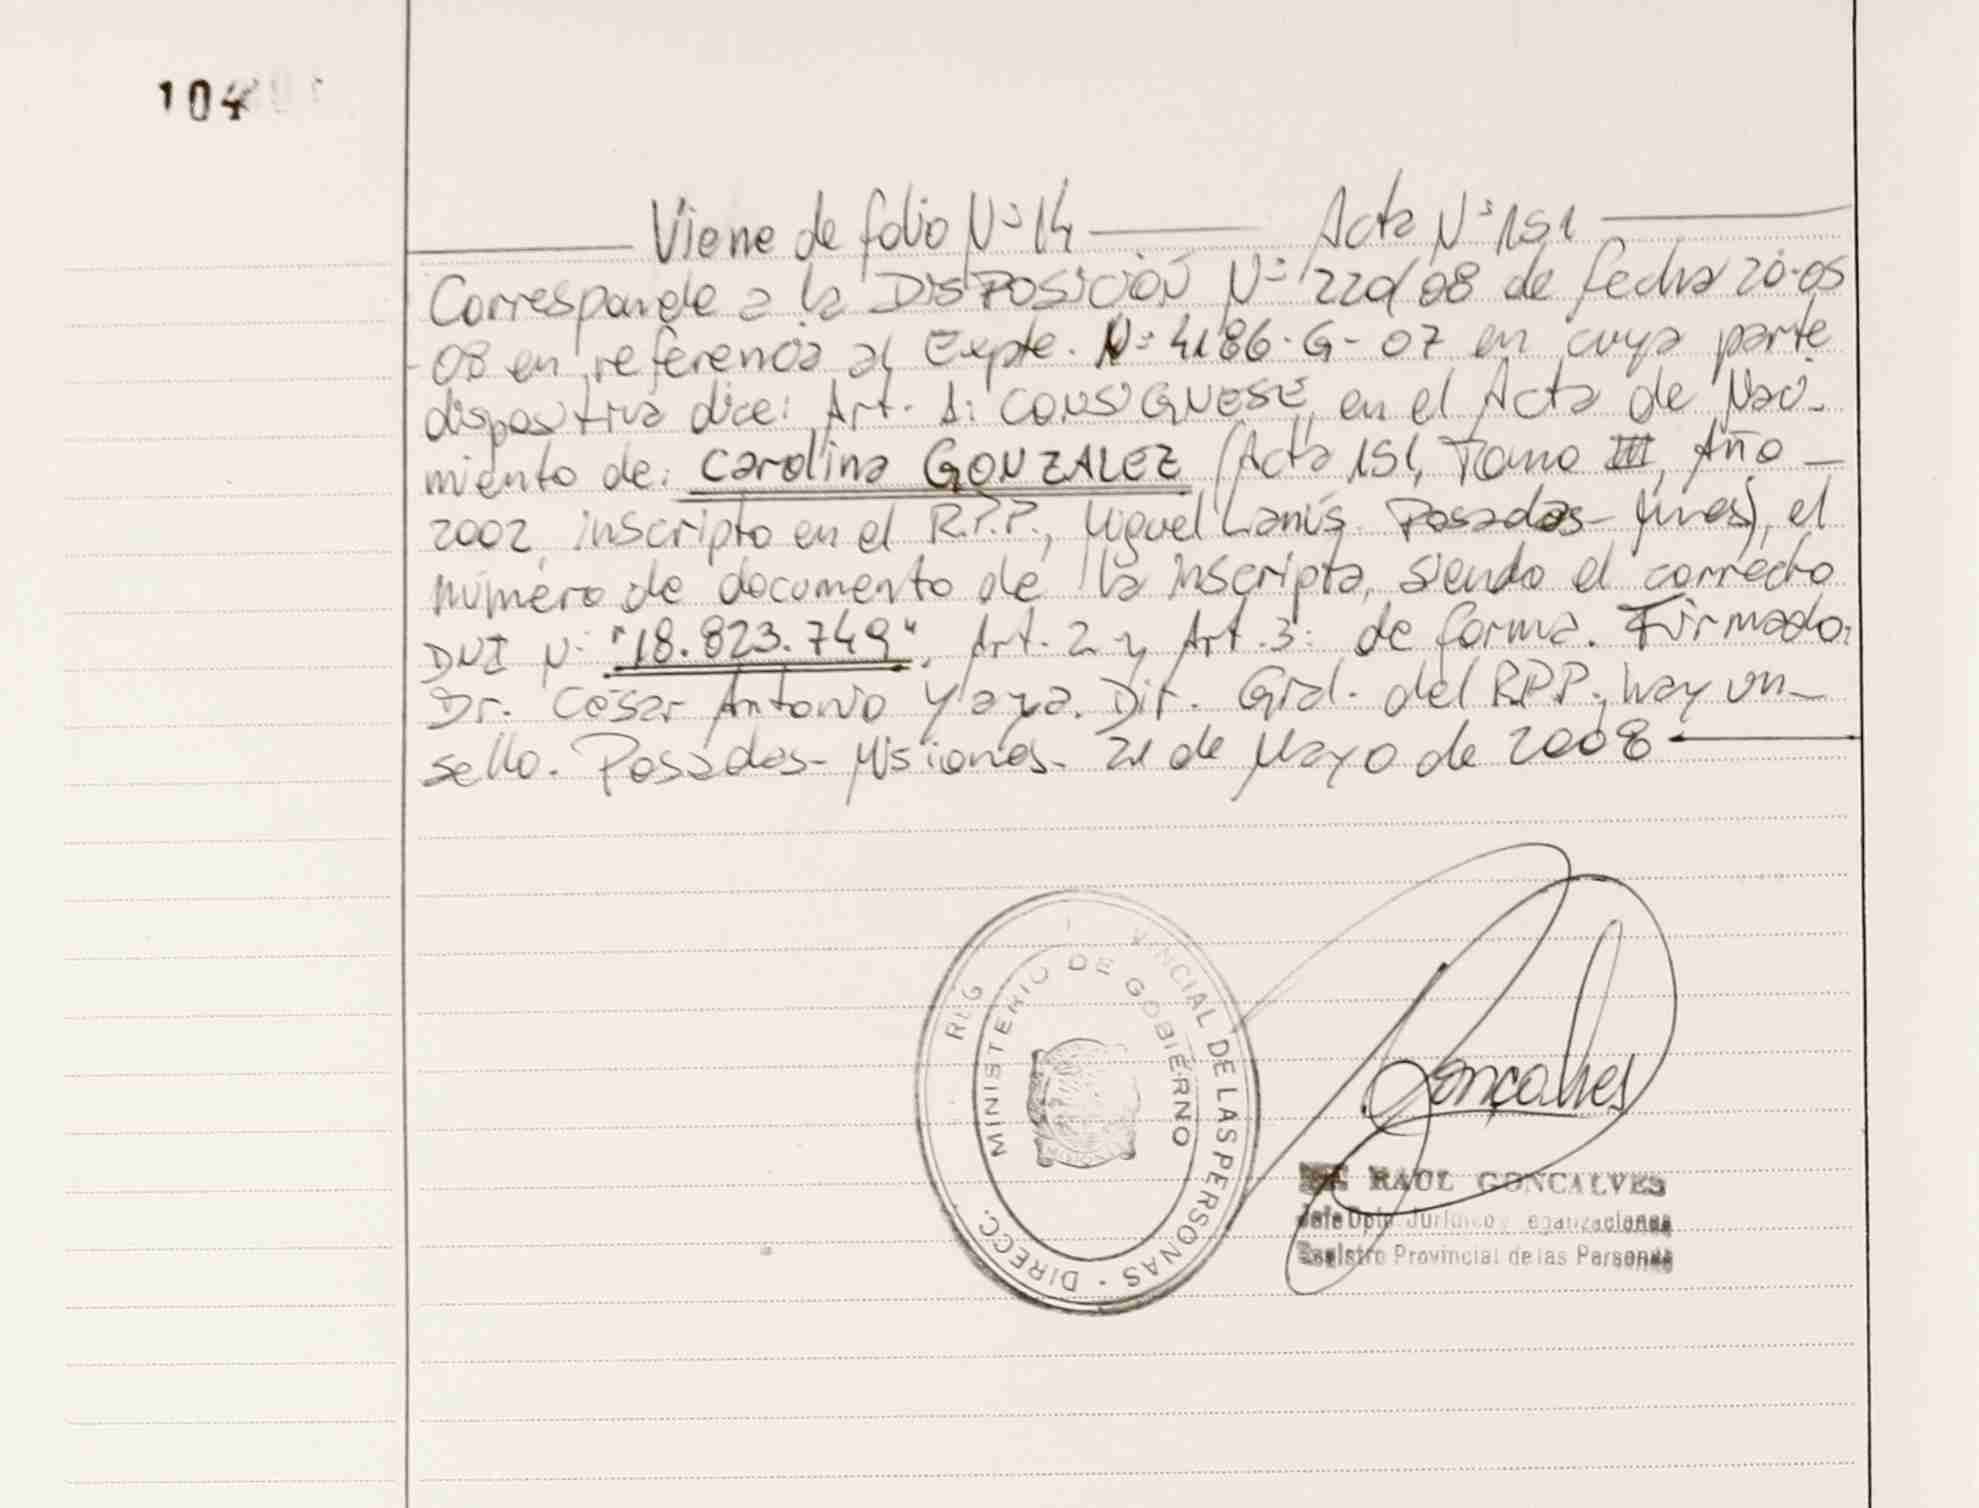 104
Viene de folio Nº 14 — Acta Nº 151
Corresponde a la DISPOSICIÓN Nº 220/08 de fecha 20-05
-08 en referencia al Expte. Nº 4186-G-07 en cuya parte
dispositiva dice: Art. 1: CONSIGNESE en el Acta de Naci-
miento de: Carolina GONZALEZ (Acta 151, Tomo III, Año
2002, inscripto en el R.P.P., Miguel Lanús. Posadas-Mnes), el
número de documento de la inscripta, siendo el correcto
DNI Nº "18.823.749". Art. 2 y Art. 3: de forma. Firmado:
Dr. César Antonio Yaya. Dir. Gral. del RPP. hay un
sello. Posadas-Misiones- 21 de Mayo de 2008
REG VINCIAL DE LAS PERSONAS · DIRECC.
MINISTERIO DE GOBIERNO
MISIONES
Goncalves
RAUL GONCALVES
Jefe Dpto. Jurídico
Registro Provincial de las Personas